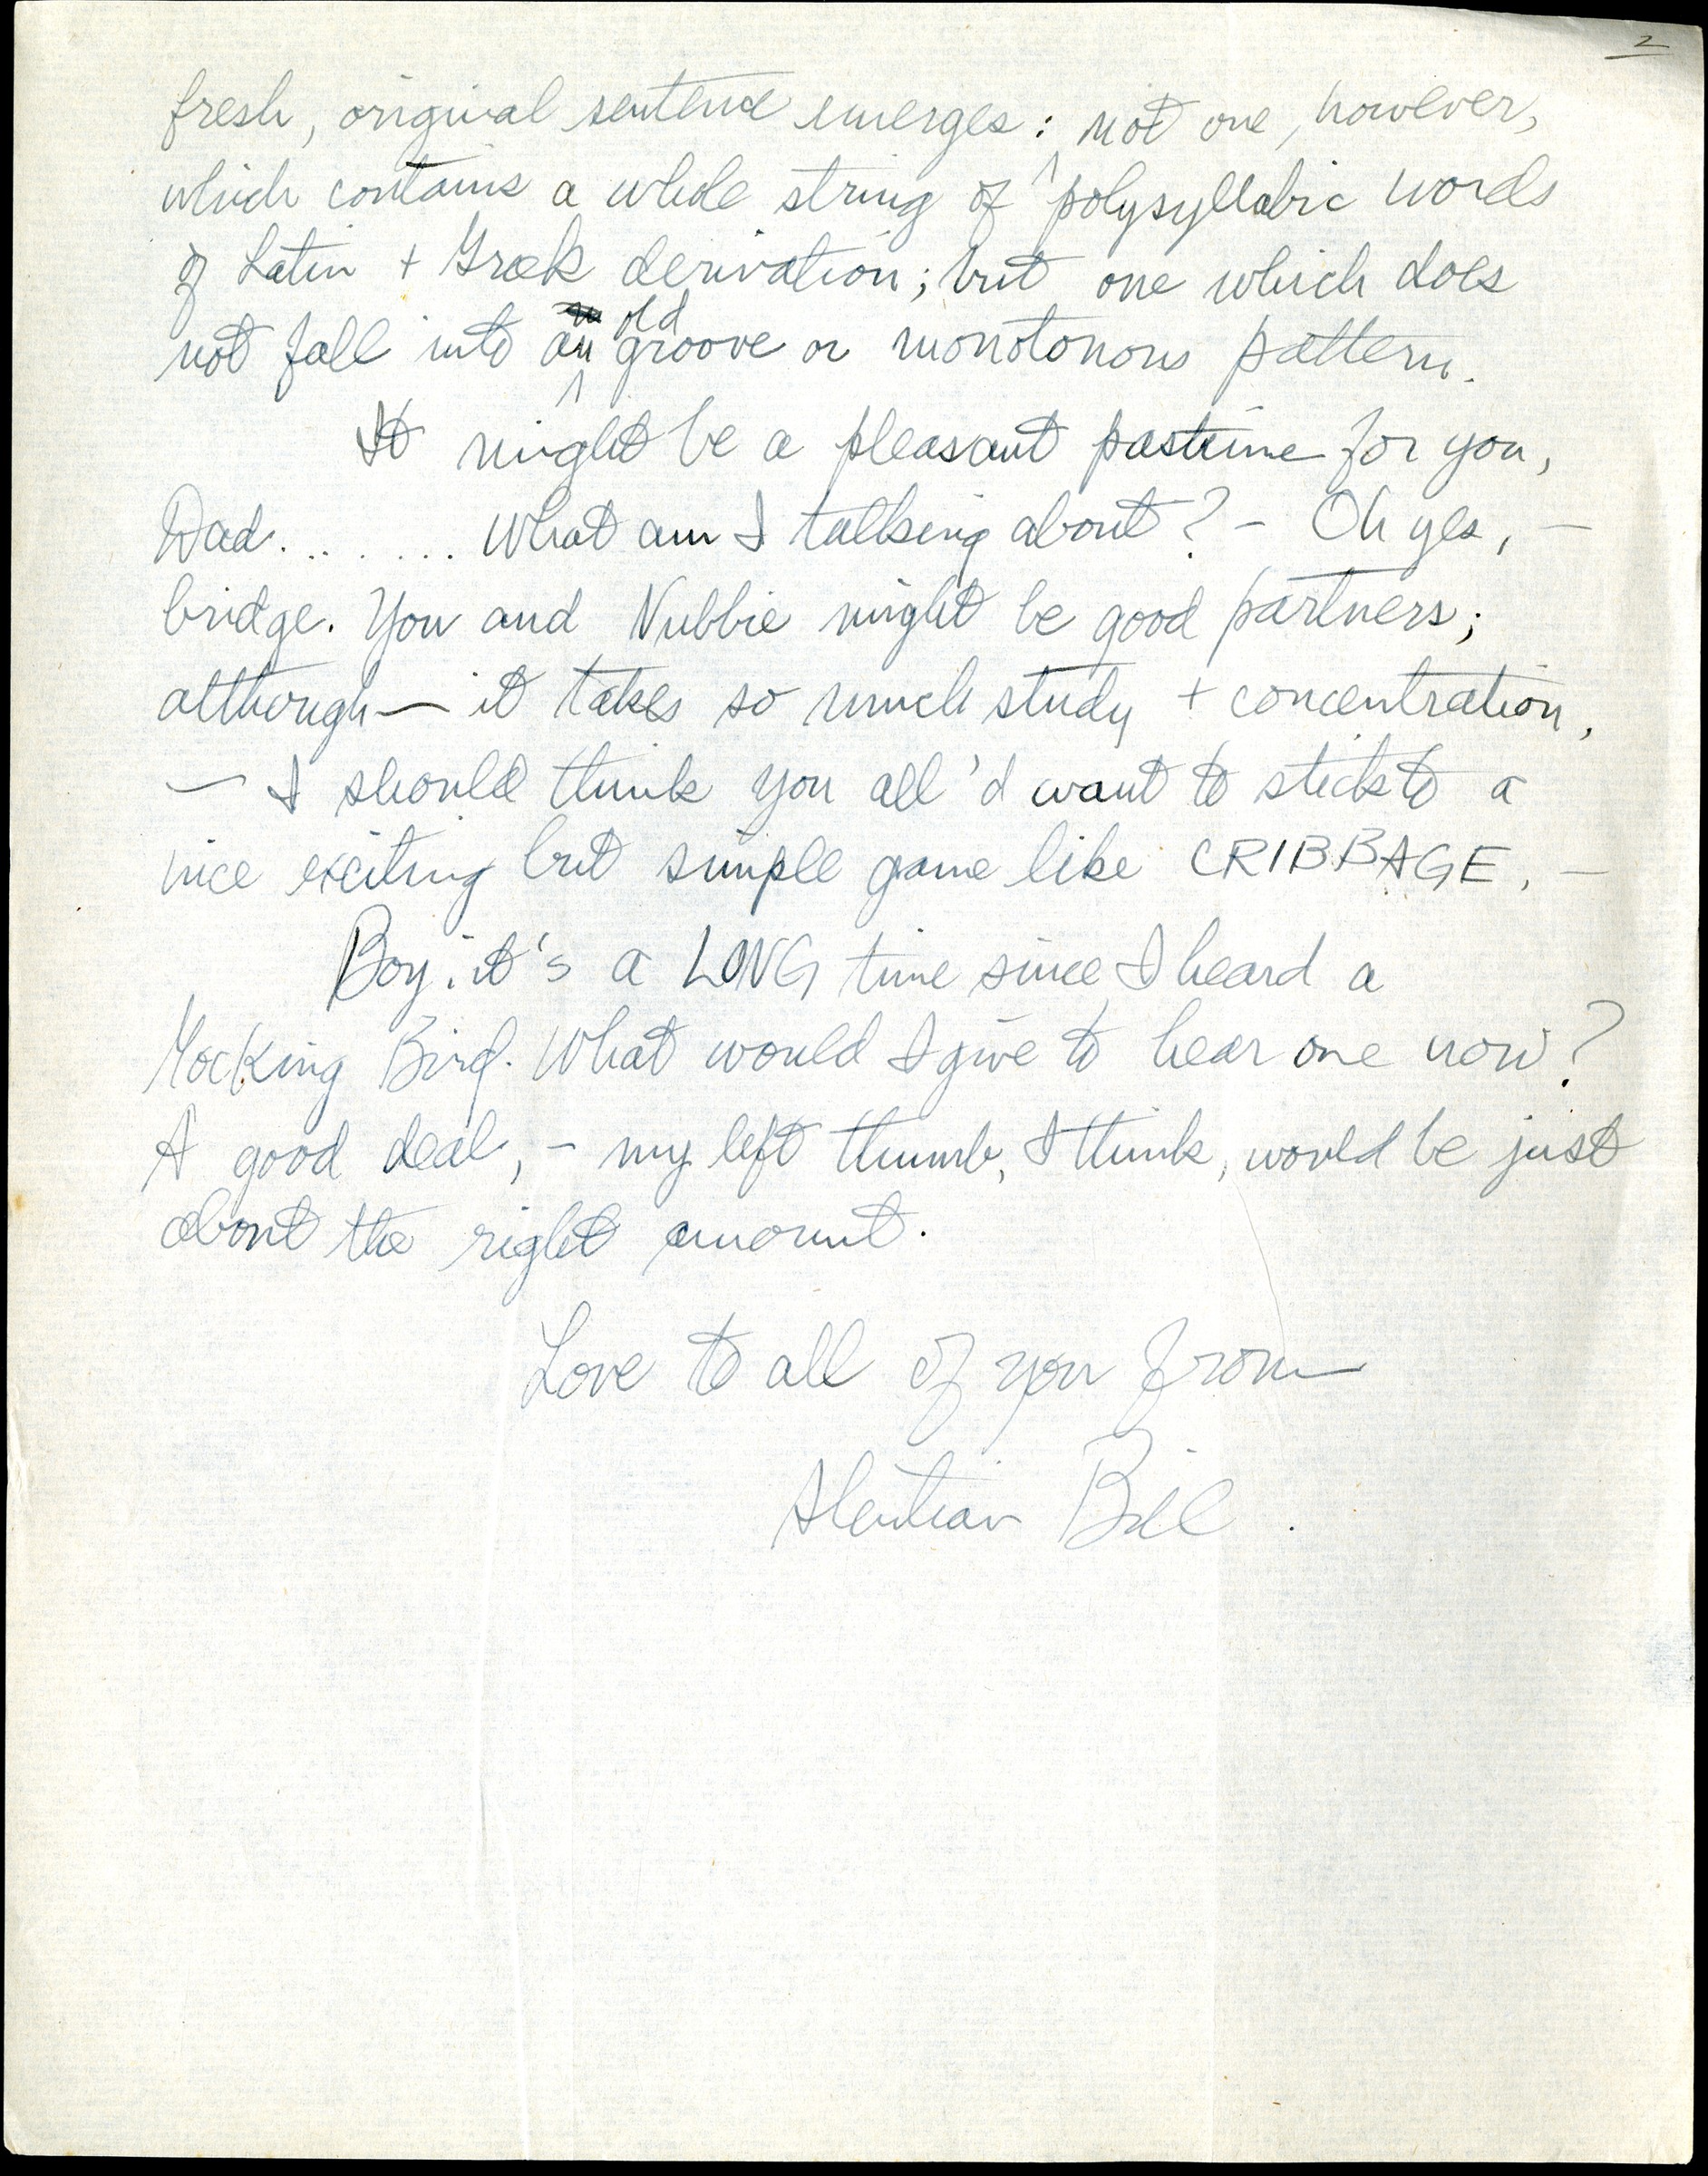 2
fresh, original sentence emerges: not one, however,
which contains a whole string of polysyllabic words
of Latin + Greek derivation; but one which does
not fall into an old groove or monotonous pattern.
It might be a pleasant pastime for you,
Dad........ What am I talking about? - Oh yes, -
bridge. You and Nubbie might be good partners;
although — it takes so much study + concentration,
— I should think you all'd want to stick to a
nice exciting but simple game like CRIBBAGE. -
Boy, it's a LONG time since I heard a
Mocking Bird. What would I give to hear one now?
A good deal, - my left thumb, I think, would be just
about the right amount.
Love to all of you from
Aleutian Bill.